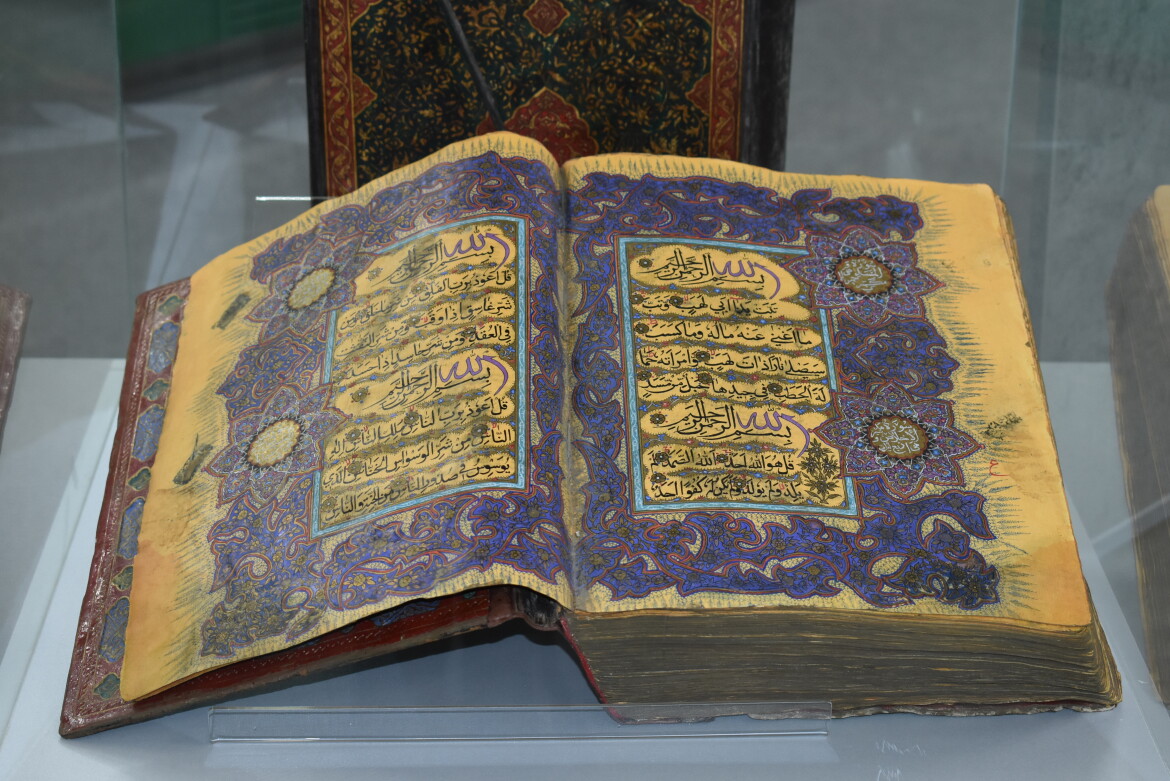 بسم الله الرحمن الرحيم
تبت يدا ابي لهب وتب
ما اغنى عنه ماله وما كسب
سيصلى نارا ذات لهب وامراته حما
لة الحطب في جيدها حبل من مسد
بسم الله الرحمن الرحيم
قل هو الله احد الله الصمد لم
يلد ولم يولد ولم يكن له كفوا احد
بسم الله الرحمن الرحيم
قل اعوذ برب الفلق من شر ما خلق ومن
شر غاسق اذا وقب ومن شر النفاثات
في العقد ومن شر حاسد اذا حسد
بسم الله الرحمن الرحيم
قل اعوذ برب الناس ملك الناس اله
الناس من شر الوسواس الخناس الذي
يوسوس في صدور الناس من الجنة والناس